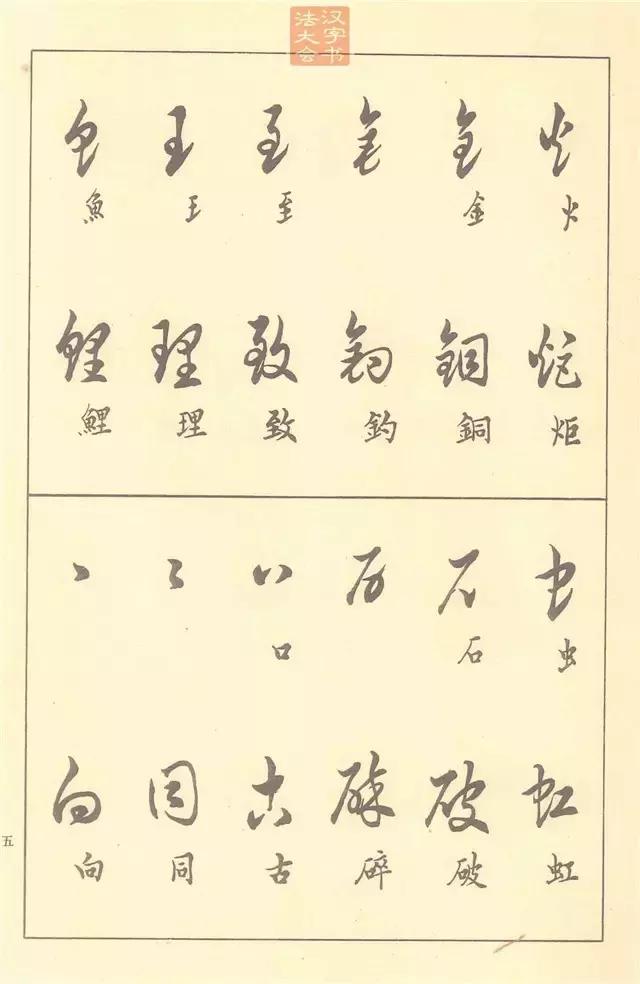 汉字书法大会
火 金 至 王 魚
炬 銅 釣 致 理 鯉
虫 石 口
虹 破 碎 古 同 向
五